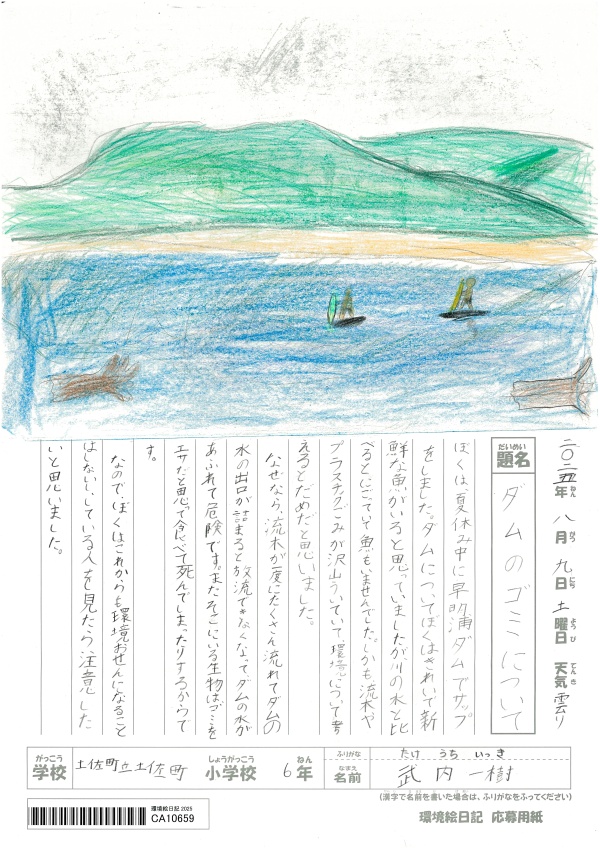 二〇二五年八月九日土曜日 天気 曇り
ねん がつ にち ようび てんき
だいめい
題名
ダムのゴミについて
ぼくは、夏休み中に早明浦ダムでサップ
をしました。ダムについてぼくはきれいで新
鮮な魚がいると思っていましたが川の水と比
べるとにごていて魚もいませんでした。しかも流木や
プラスチックごみが沢山ういていて、環境について考
えるとだめだと思いました。
なぜなら、流木が一度にたくさん流れてダムの
水の出口が詰まると放流できなくなってダムの水が
あふれて危険です。またそこにいる生物は、ゴミを
エサだと思って食べて死んでしまったりするからで
す。
なので、ぼくはこれからも環境おせんになること
はしないし、している人を見たら注意した
いと思いました。
がっこう
学校
土佐町立土佐町
しょうがっこう
小学校
6
ねん
年
ふりがな
なまえ
名前
たけ うち いっき
武内 一樹
(漢字で名前を書いた場合は、ふりがなをふってください)
環境絵日記 2025
CA10659
環境絵日記 応募用紙